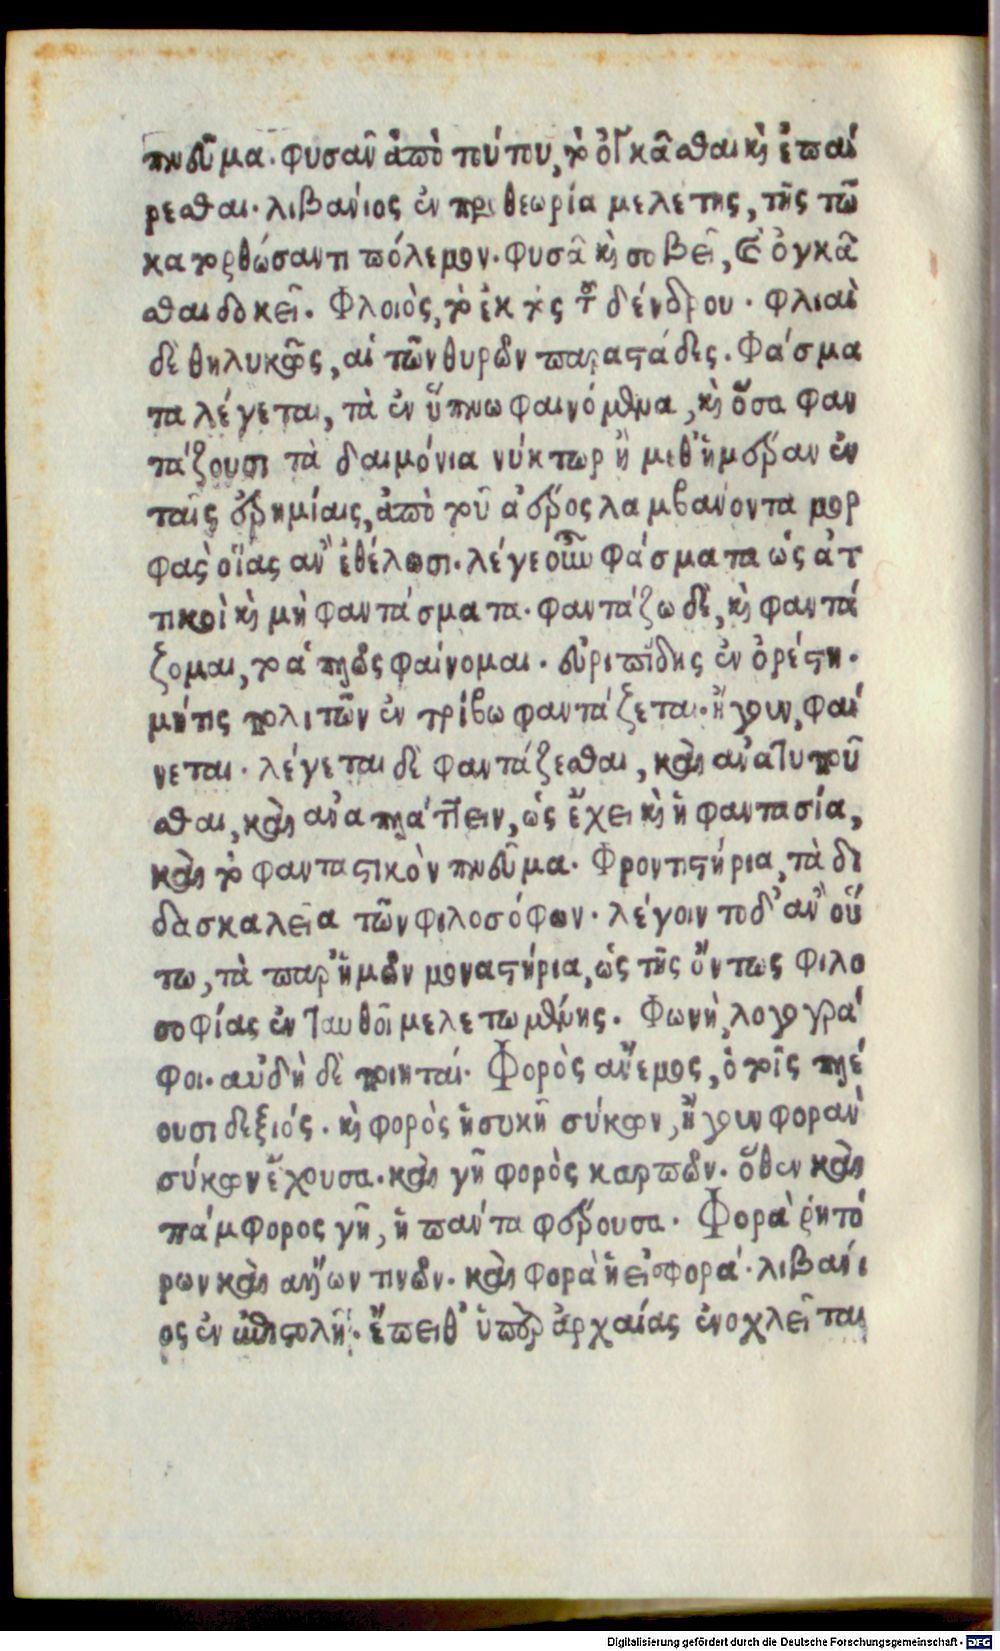 πνεῦμα. φυσᾶν ἀπὸ τούτου, τὸ ὀγκᾶσθαι καὶ ἐπαί
ρεσθαι. λιβανίος ἐν προθεωρία μελέτης, τῆς τῶ
κατορθώσαντι πόλεμον. φυσᾶ καὶ σοβεῖ, καὶ ὀγκᾶ
σθαι δοκεῖ. Φλοιὸς, τὸ ἐκτὸς τοῦ δένδρου. φλιαὶ
δὲ θηλυκῶς, αἱ τῶν θυρῶν παραστάδες. Φάσμα
τα λέγεται, τὰ ἐν ὕπνω φαινόμενα, καὶ ὅσα φαν
τάζουσι τὰ δαιμόνια νύκτωρ ἢ μεθ' ἡμέραν ἐν
ταῖς ἐρημίαις, ἀπὸ τοῦ ἀέρος λαμβάνοντα μορ
φὰς οἵας ἂν ἐθέλωσι. λέγε οὖν φάσματα ὡς ἀτ
τικοὶ καὶ μὴ φαντάσματα. φαντάζω δὲ, καὶ φαντά
ζομαι, τὸ ἁπλῶς φαίνομαι. εὐριπίδης ἐν ὀρέστη.
μήτις πολιτῶν ἐν τρίβω φαντάζεται. ἤγουν, φαί
νεται. λέγεται δὲ φαντάζεσθαι, καὶ ἀνατυποῦ
σθαι, καὶ ἀναπλάττειν, ὡς ἔχει καὶ ἡ φαντασία,
καὶ τὸ φανταστικὸν πνεῦμα. Φροντιστήρια, τὰ δι
δασκαλεῖα τῶν φιλοσόφων. λέγοιντο δ' ἂν οὕ
τω, τὰ παρ' ἡμῶν μοναστήρια, ὡς τῆς ὄντως φιλο
σοφίας ἐν ταυθοῖ μελετωμένης. Φωνὴ, λογογρά
φοι. αὐδὴ δὲ ποιηταί. Φορὸς ἄνεμος, ὁ τοῖς πλέ
ουσι δεξιός. καὶ φορὸς ἡ συκῆ σύκων, ἤγουν φορὰν
σύκων ἔχουσα. καὶ γῆ φορὸς καρπῶν. ὅθεν καὶ
πάμφορος γῆ, ἡ πάντα φέρουσα. Φορὰ ῥητό
ρων καὶ ἄλλων τινῶν. καὶ φορὰ ἡ εἰσφορά. λιβανί
ος ἐν ἐπιστολῆ. ἔπειθ' ὑπὲρ ἀρχαίας ἐνοχλεῖται
Digitalisierung gefördert durch die Deutsche Forschungsgemeinschaft - DFG